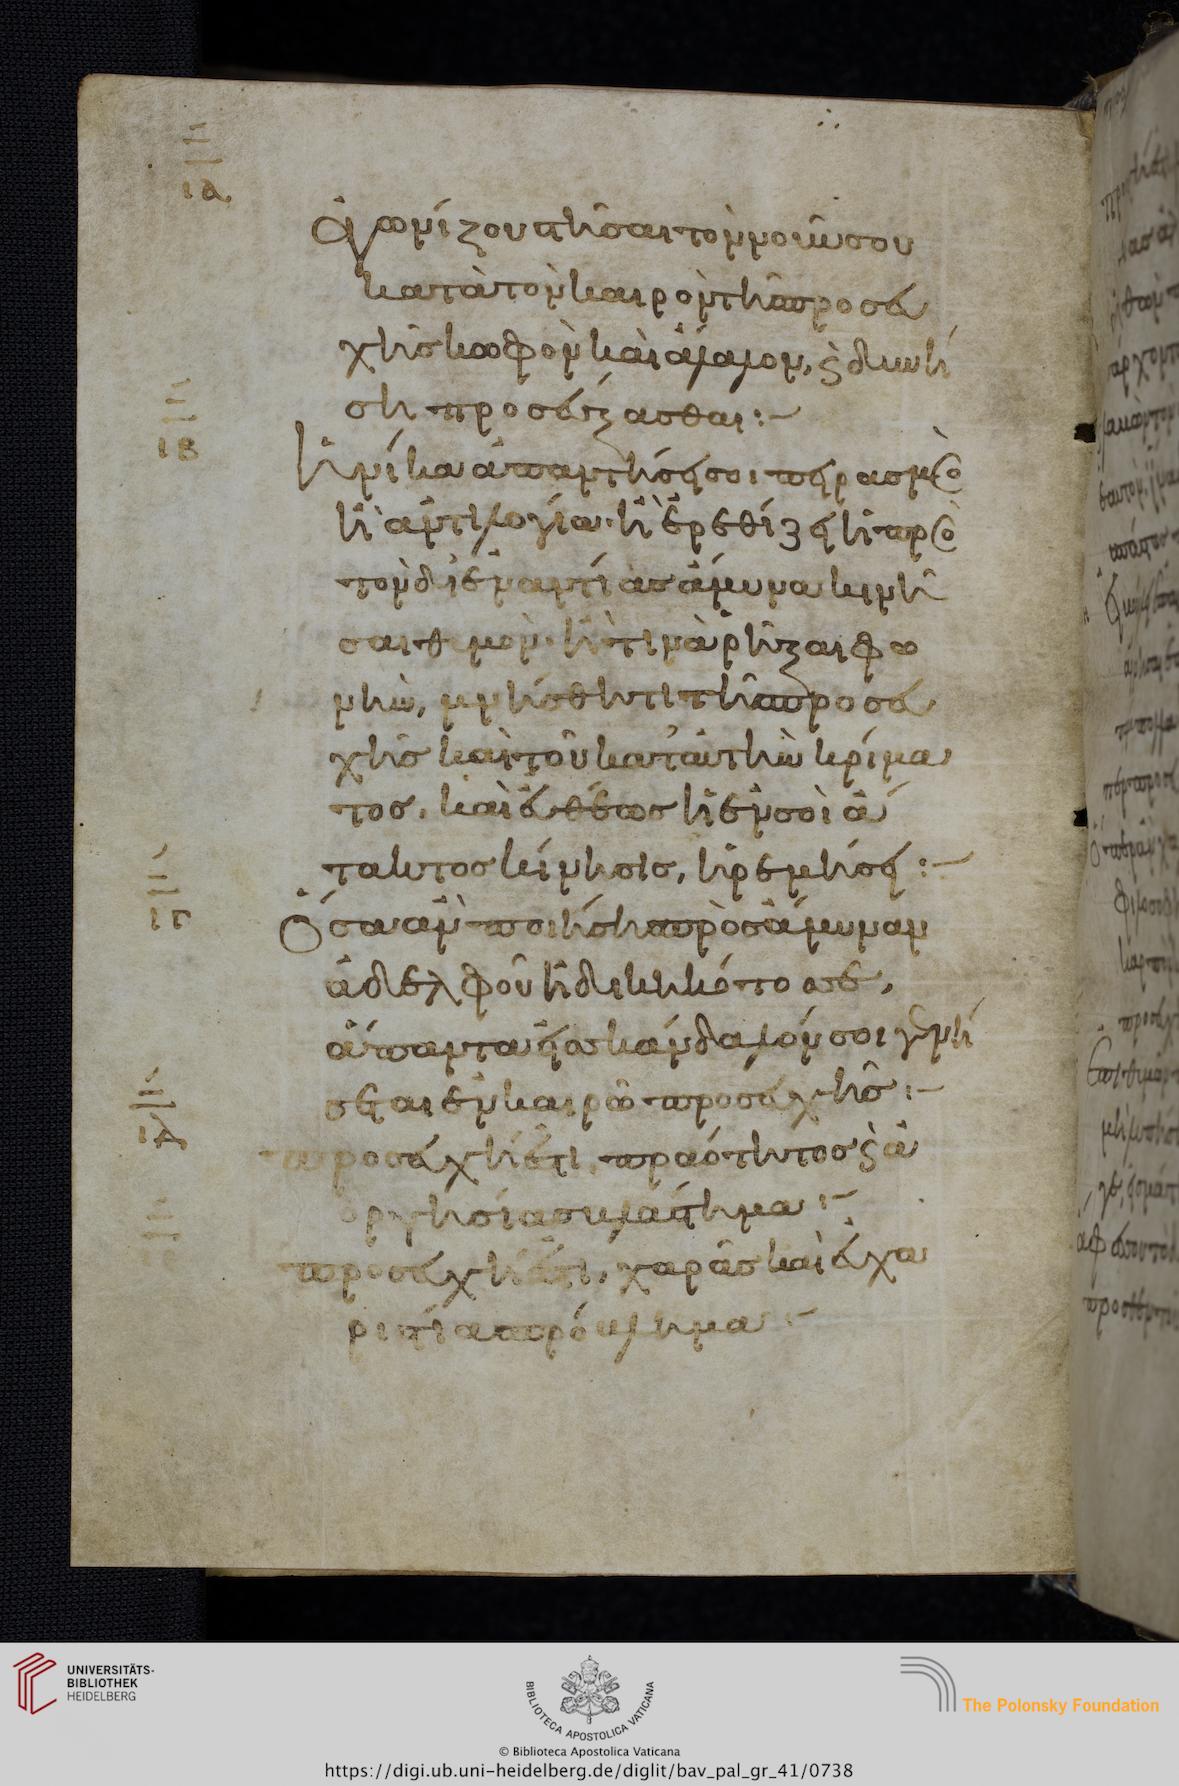 ια
Ἀγωνίζου στῆσαι τὸν νοῦν σου
κατὰ τὸν καιρὸν τῆς προσευ
χῆς κωφὸν καὶ ἄλαλον, ϛ δυνή
σῃ προσεύξασθαι:~
ιβ
Ἡνίκα ἀπαντήσει σοι πειρασμὸς
ἢ ἀντιλογία· ἢ ἐρεθίζει ἢ πρὸς
τὸν δι' ἐναντίας ἄμυνα κινῆ
σαι θυμόν· ἢ τινὰ ῥῆξαι φω
νὴν, μνήσθητι τῆς προσευ
χῆς καὶ τοῦ κατ' αὐτὴν κρίμα
τος, καὶ εὐθέως ἡ ἐν σοὶ ἄ
τακτος κίνησις, ἠρεμήσει:~
ιγ
Ὅσα ἂν ποιήσῃς πρὸς ἄμυναν
ἀδελφοῦ ἠδικηκότος σε,
ἅπαντα εἰς σκάνδαλόν σοι γενή
σεται ἐν καιρῷ προσευχῆς:~
ιδ
προσευχή ἐστι, πραότητος ϛ ἀ
οργησίας βλάστημα:~
προσευχή ἐστι, χαρᾶς καὶ εὐχα
ριστίας πρόβλημα:~
UNIVERSITÄTS-
BIBLIOTHEK
HEIDELBERG
BIBLIOTECA APOSTOLICA VATICANA
The Polonsky Foundation
© Biblioteca Apostolica Vaticana
https://digi.ub.uni-heidelberg.de/diglit/bav_pal_gr_41/0738